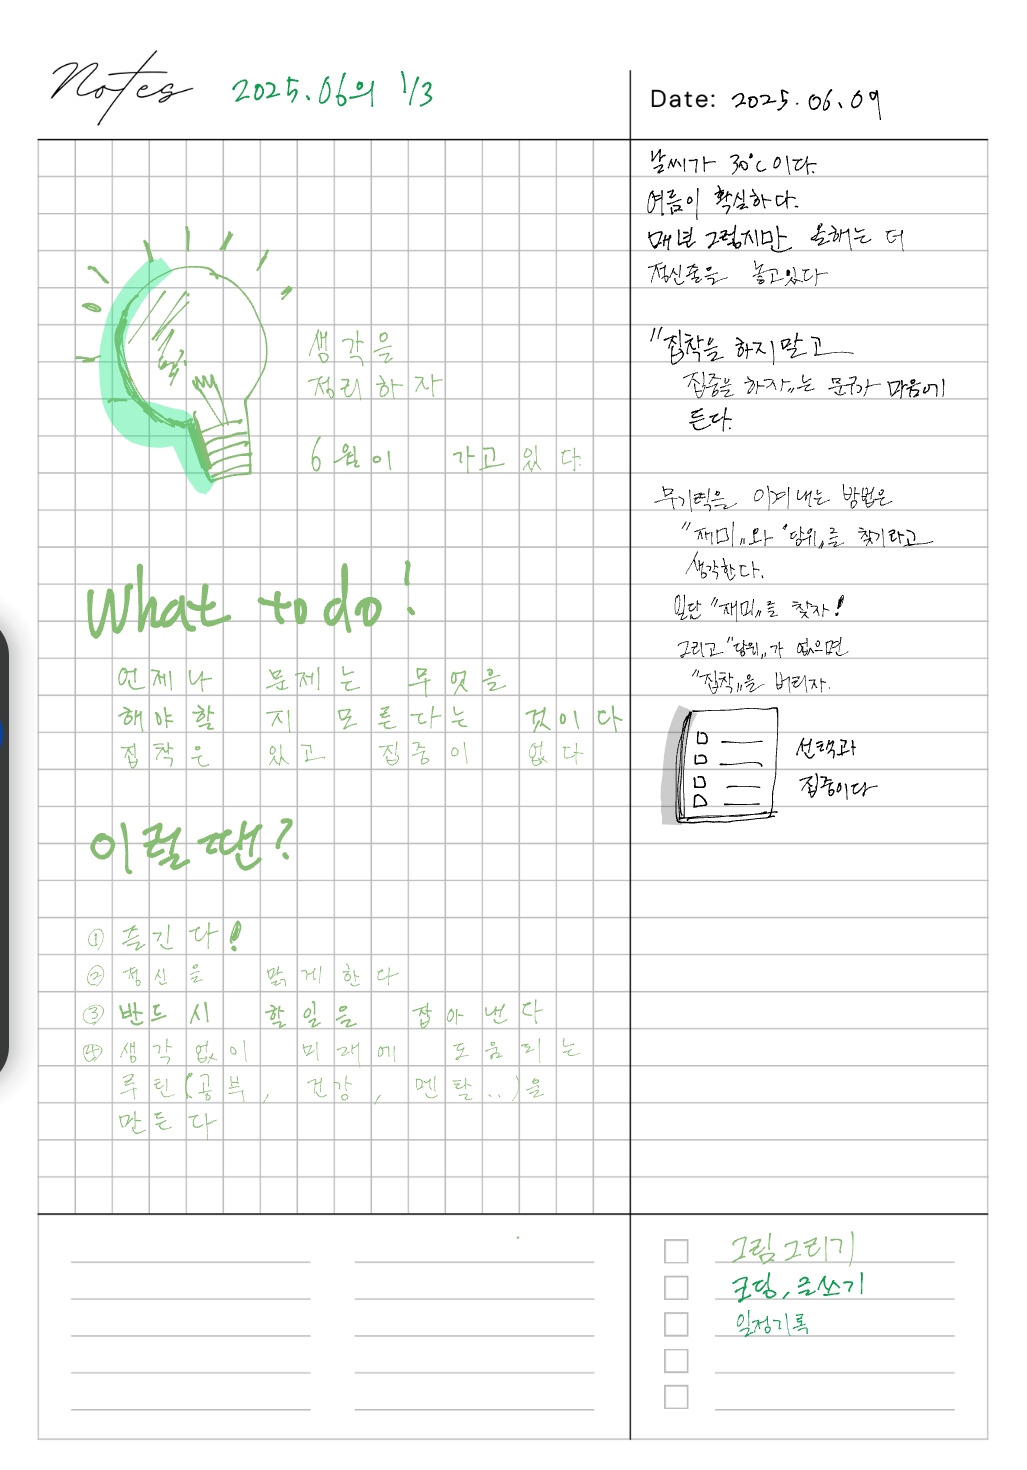 Notes 2025.06의 1/3
Date: 2025.06.09
생각을
정리하자
6월이 가고있다.
What to do!
언제나 문제는 무엇을
해야할 지 모른다는 것이다
집착은 있고 집중이 없다
이럴땐?
① 즐긴다!
② 정신을 맑게한다
③ 반드시 할일을 잡아낸다
④ 생각없이 미래에 도움되는
루틴(공부, 건강, 멘탈..)을
만든다
날씨가 30℃이다.
여름이 확실하다.
매년 그렇지만 올해는 더
정신줄을 놓고있다
"집착을 하지말고
집중을 하자"는 문구가 마음에
든다.
무기력을 이겨내는 방법은
"재미"와 "당위"를 찾기라고
생각한다.
일단 "재미"를 찾자!
그리고 "당위"가 없으면
"집착"을 버리자.
선택과
집중이다
그림그리기
코딩, 글쓰기
일정기록